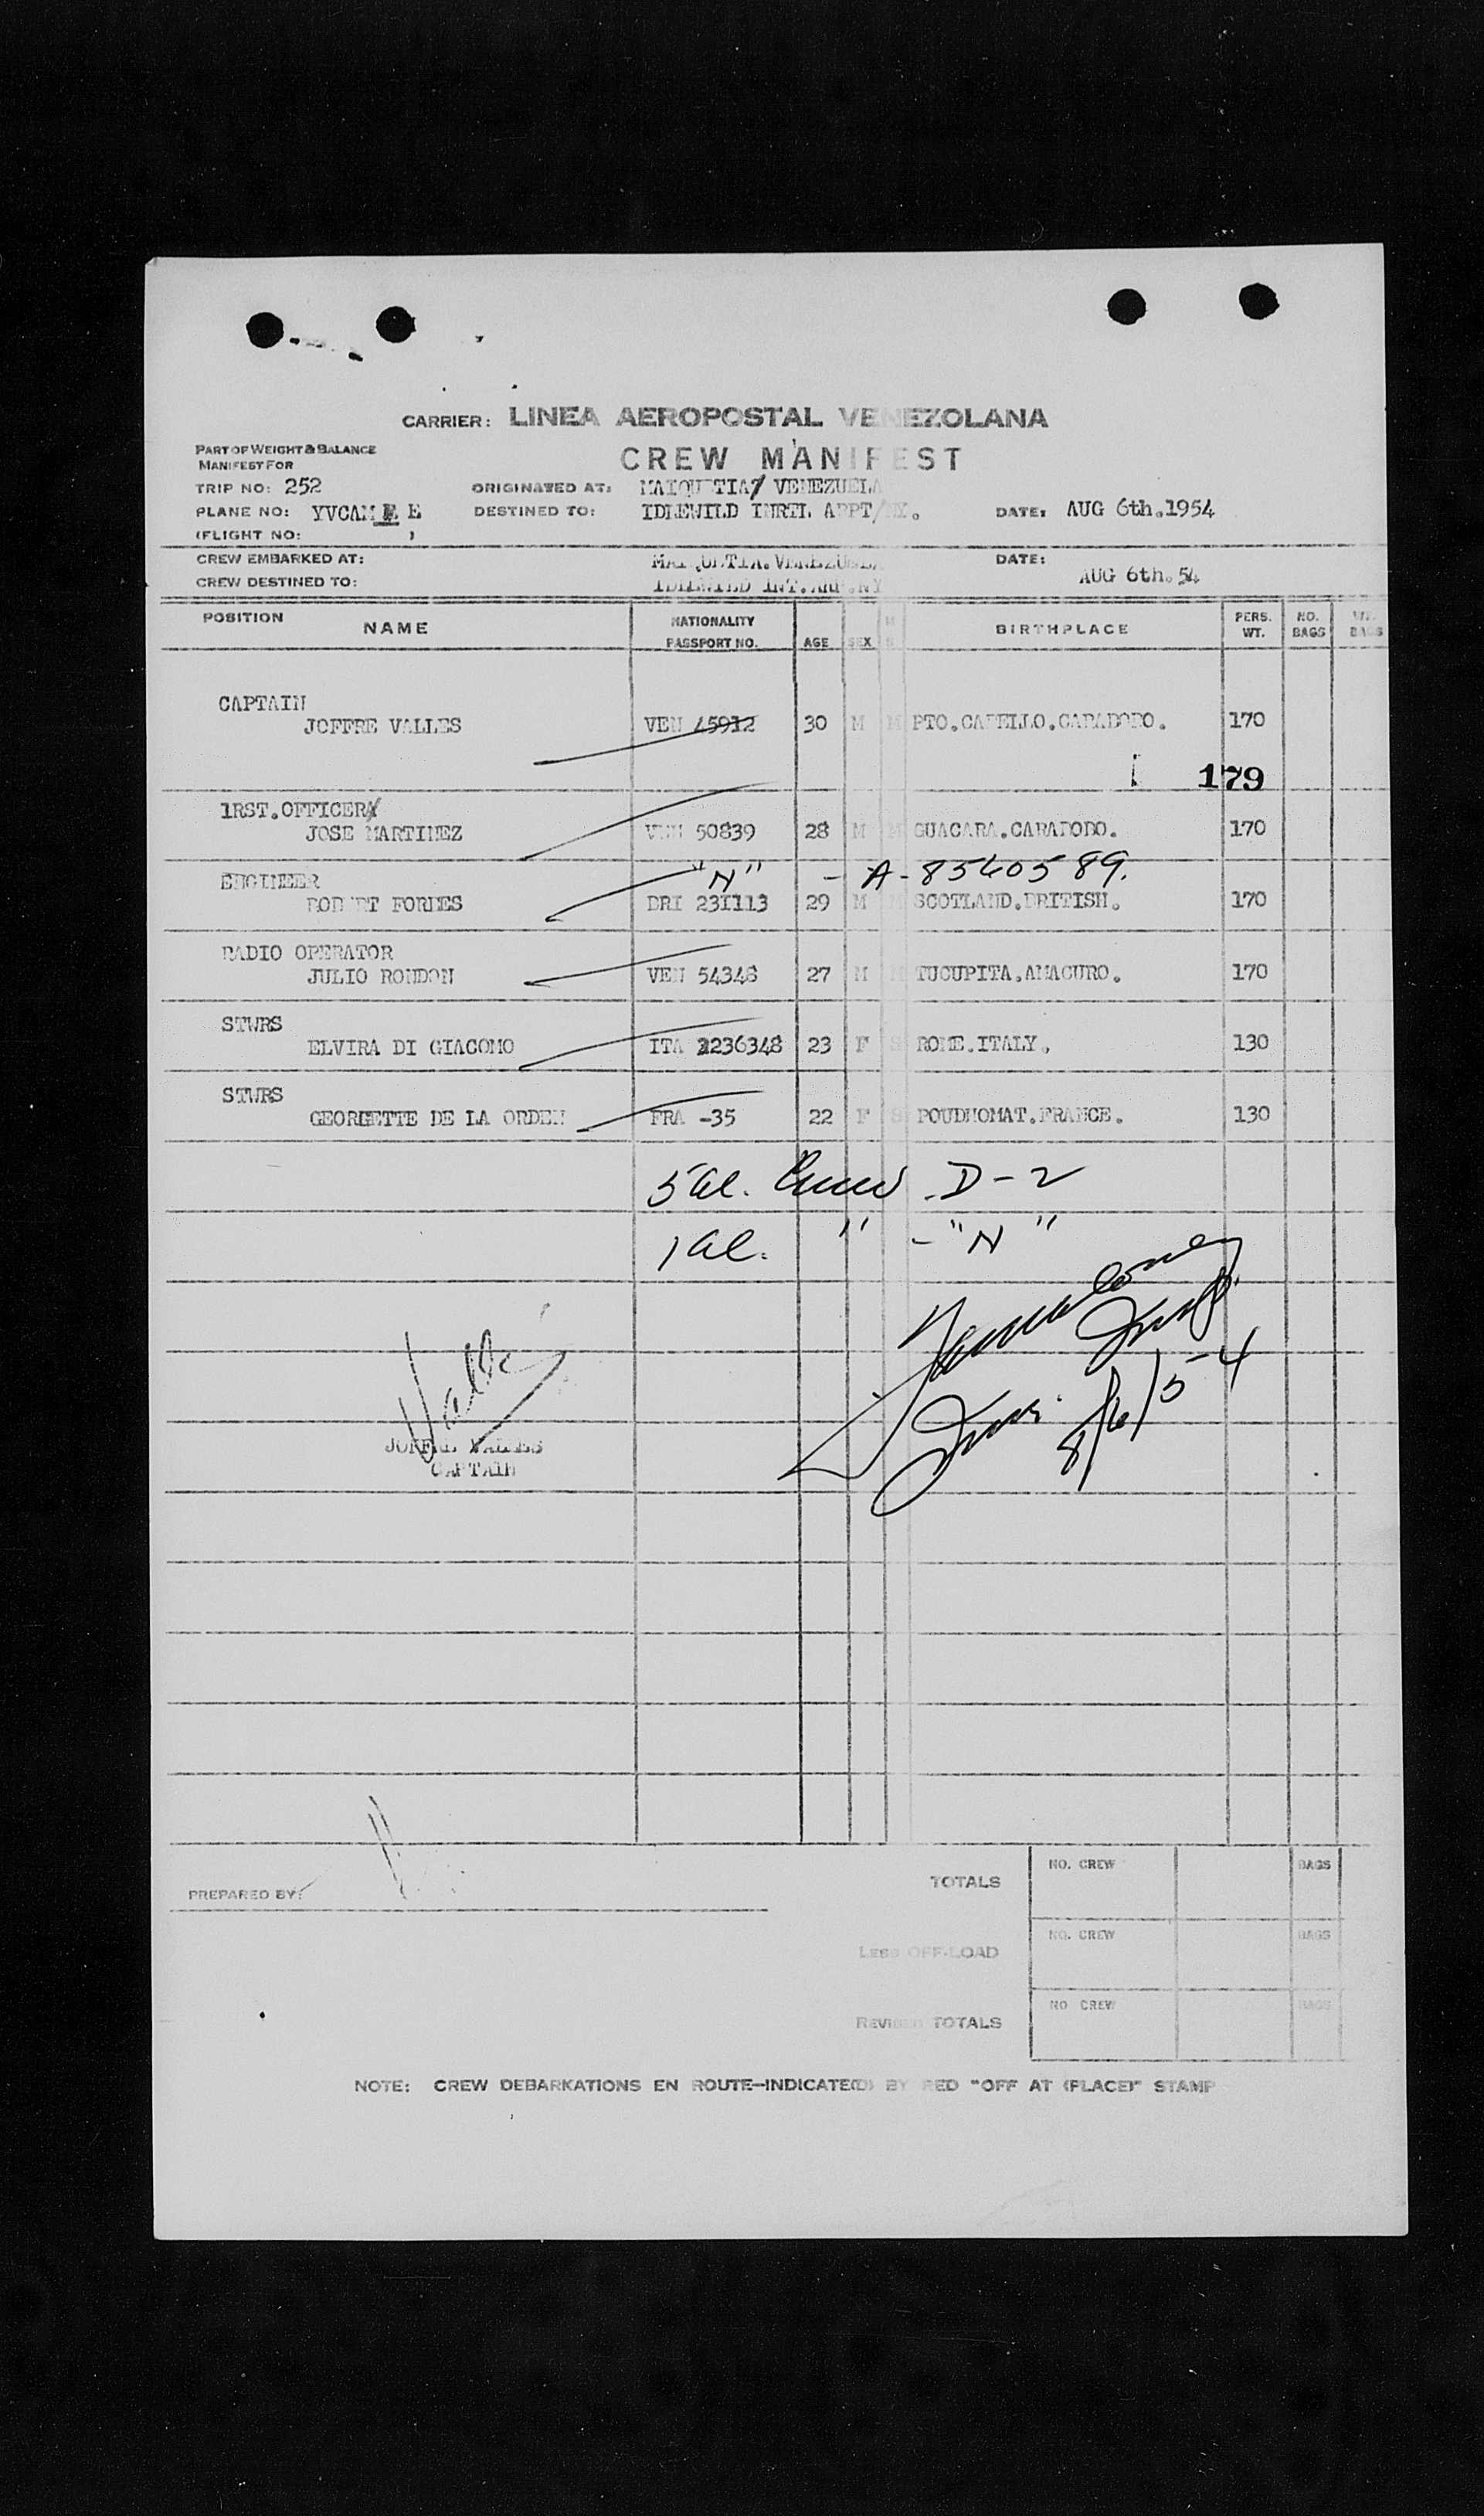 CARRIER: LINEA AEROPOSTAL VENEZOLANA
PART OF WEIGHT & BALANCE
MANIFEST FOR
CREW MANIFEST
TRIP NO: 252 ORIGINATED AT: MAIQUETIA/ VENEZUELA
PLANE NO: YVCAM E DESTINED TO: IDLEWILD INRTL ARPT/NY. DATE: AUG 6th.1954
(FLIGHT NO: )
CREW EMBARKED AT: MAIQUETIA.VENEZUELA DATE:
CREW DESTINED TO: IDLEWILD INT.ARP.NY AUG 6th.54
POSITION NAME NATIONALITY PASSPORT NO. AGE SEX M S BIRTHPLACE PERS. WT. NO. BAGS WT. BAGS
CAPTAIN
JOFFRE VALLES VEN 45912 30 M M PTO.CABELLO.CARABOBO. 170
179
1RST.OFFICER
JOSE MARTINEZ VEN 50839 28 M M GUACARA.CARABOBO. 170
"N" - A-8560589.
ENGINEER
ROBERT FORBES BRI 231113 29 M M SCOTLAND.BRITISH. 170
RADIO OPERATOR
JULIO RONDON VEN 54348 27 M M TUCUPITA.AMACURO. 170
STWRS
ELVIRA DI GIACOMO ITA 2236348 23 F S ROME.ITALY. 130
STWRS
GEORGETTE DE LA ORDEN FRA -35 22 F S POUDHOMAT.FRANCE. 130
5 al. Crew - D-2
1 al. " - "N"
Valles
Insp.
Imm. 8/6/54
JOFFRE VALLES
CAPTAIN
PREPARED BY:
TOTALS NO. CREW BAGS
LESS OFF-LOAD NO. CREW BAGS
REVISED TOTALS NO CREW BAGS
NOTE: CREW DEBARKATIONS EN ROUTE—INDICATE(D) BY RED "OFF AT (PLACE)" STAMP